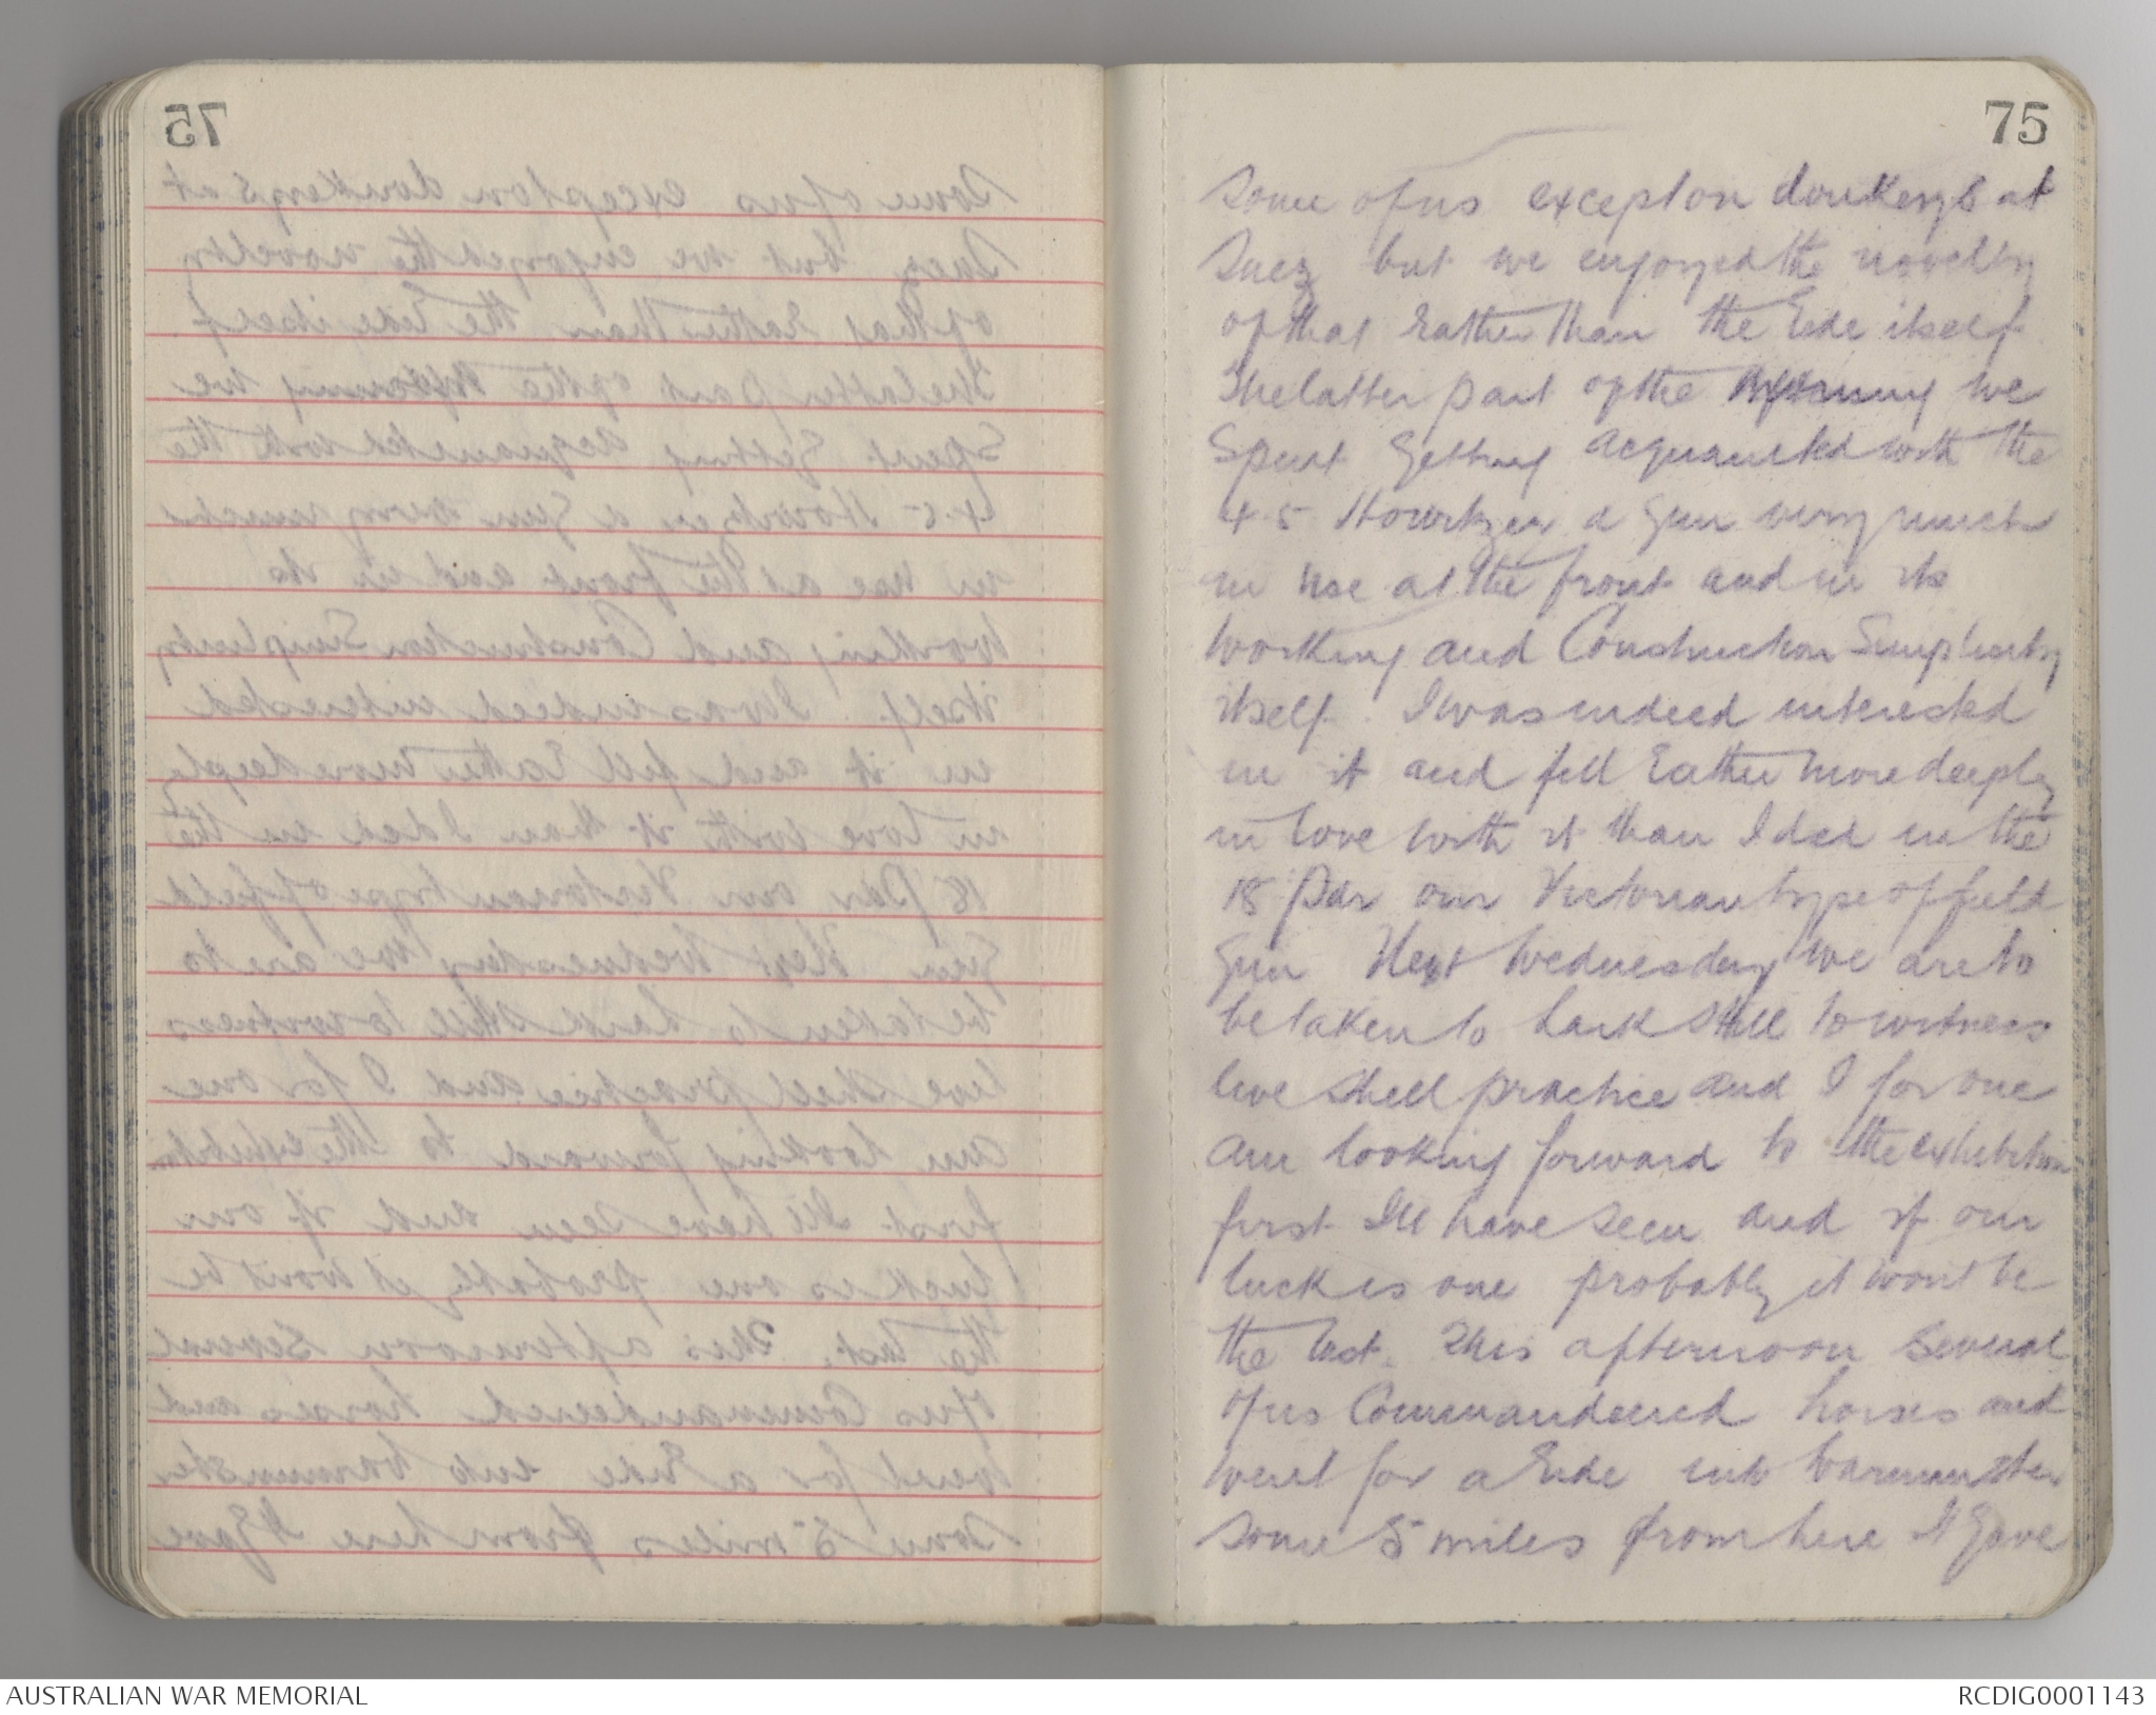 75
75
some of us except on donkeys at
Suez but we enjoyed the novelty
of that rather than the ride itself
The latter part of the we
Spent getting acquainted with the
4.5 Howitzer a gun very much
in use at the front and in its
working and Construction Simplicity
itself. I was indeed interested
in it and fell rather more deeply
in love with it than I did in the
18 Pdr our Victorian type of field
gun Next Wednesday we are to
be taken to Lark Hill to witness
live shell practice and I for one
am looking forward to the exhibition
first Ill have seen and if our
luck is one probably it wont be
the last. This afternoon several
of us Commandeered horses and
went for a ride into Warminster
some 5 miles from here It gave
AUSTRALIAN WAR MEMORIAL
RCDIG0001143